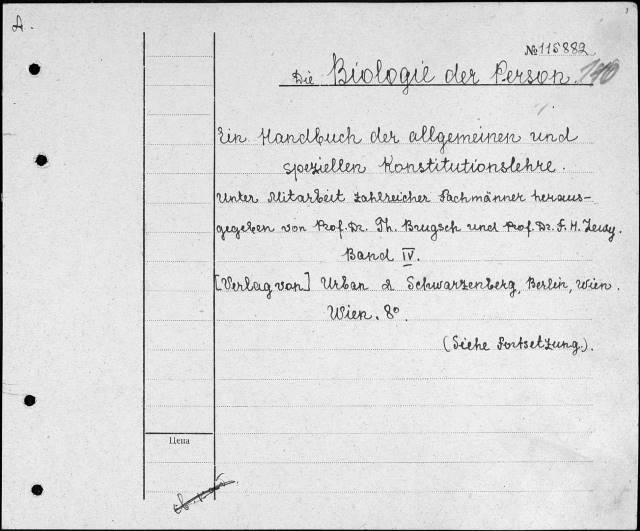 A.
№115882
Die Biologie der Person. 140
Ein Handbuch der allgemeinen und
speziellen Konstitutionslehre.
Unter Mitarbeit zahlreicher Fachmänner heraus-
gegeben von Prof. Dr. Th. Brugsch und Prof. Dr. F. H. Lewy.
Band IV.
[Verlag von] Urban & Schwarzenberg, Berlin, Wien.
Wien. 8°
(Siehe Fortsetzung.).
Цена